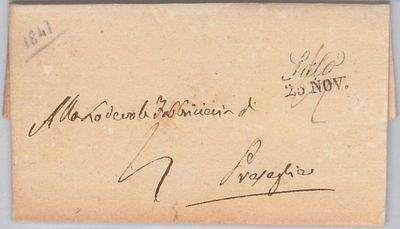 1841
Salò
25 NOV.
Alla Lodevole Fabbricieria di
Provaglio